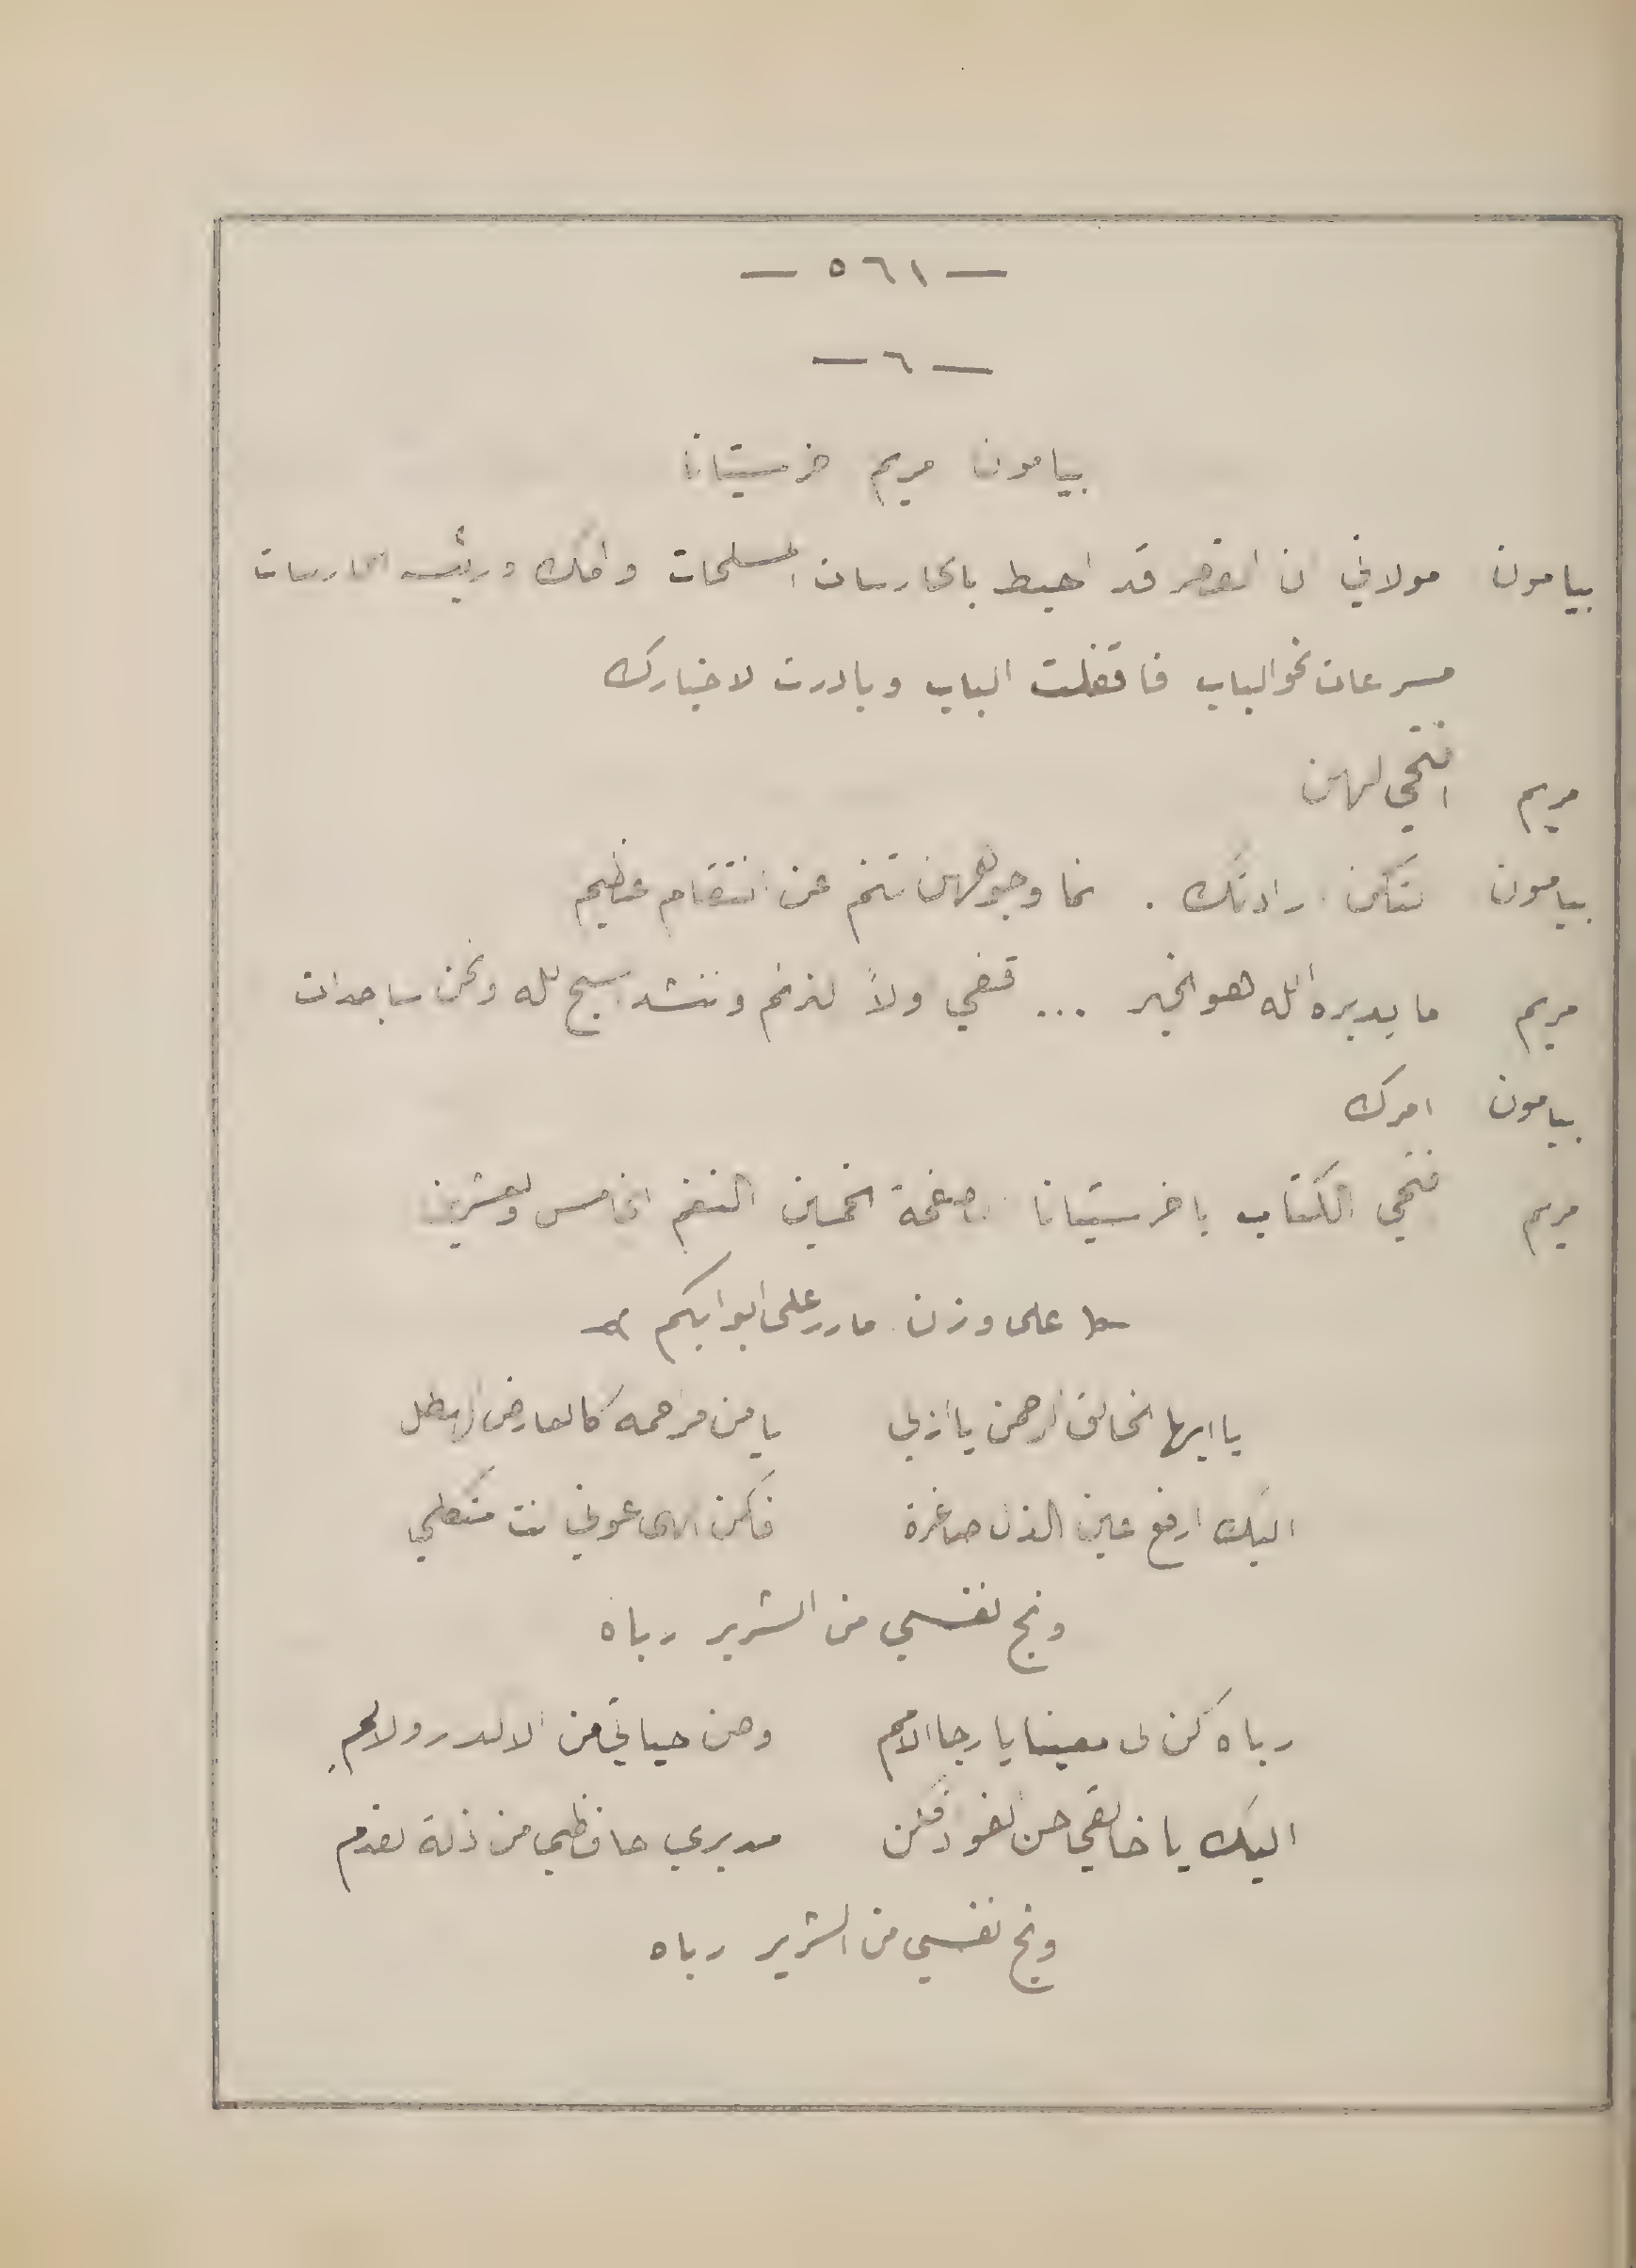 — ٥٦١ —
— ٦ —
بيامون مريم خرستيانا
بيامون مولاتي ان القصر قد احيط بالحارسات المسلحات وافلك ورئيسة الحارسات
مسرعات نحو الباب فاقفلت الباب وبادرت لاخبارك
مريم افتحي لهن
بيامون لتكن ارادتك . انما وجوههن تنم عن انتقام عظيم
مريم ما يدبره الله هو الخير ... قفي اولاً لنرنم وننشد نسبح لله ونحن ساجدات
بيامون امرك
مريم افتحي الكتاب يا خرستيانا صفحة الخمسين النغم الخامس والعشرين
على وزن ما رر على ابوابكم
يا ايها الخالق الرحمن يا ازلي يا من مراحمه كالعارض الهطل
اليك ارفع عين الذل صاغرة فكن الهى عوني انت متكلي
ونج نفسي من الشرير رباه
رباه كن لى معينا يا رجا الامم وصن حياتي من الاكدار والالم
اليك يا خالقي حسن فكن مدبري حافظي من زلة القدم
ونج نفسي من الشرير رباه